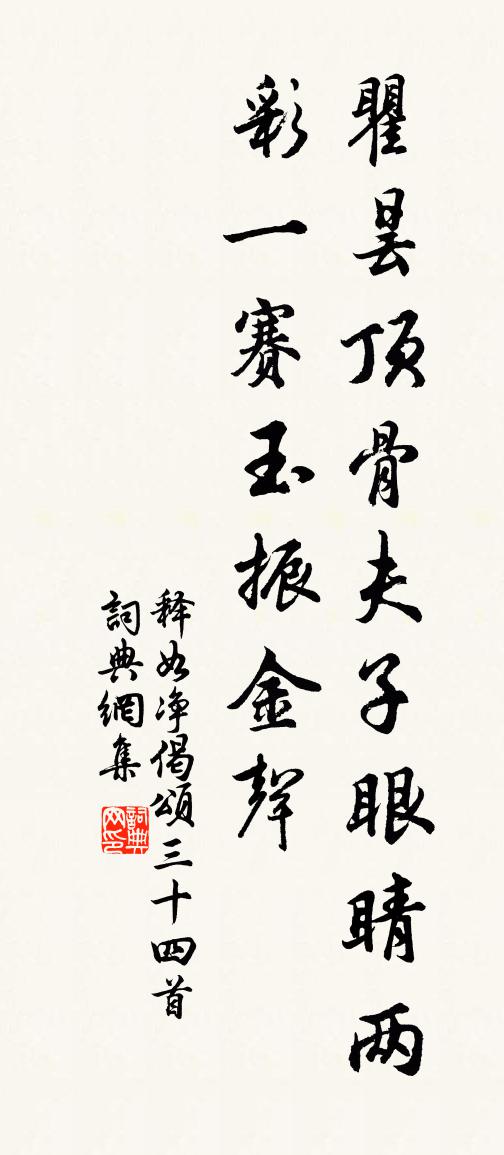 瞿昙顶骨夫子眼睛两
彩一赛玉振金聲
释如净偈颂三十四首
詞典網集
詞典网印